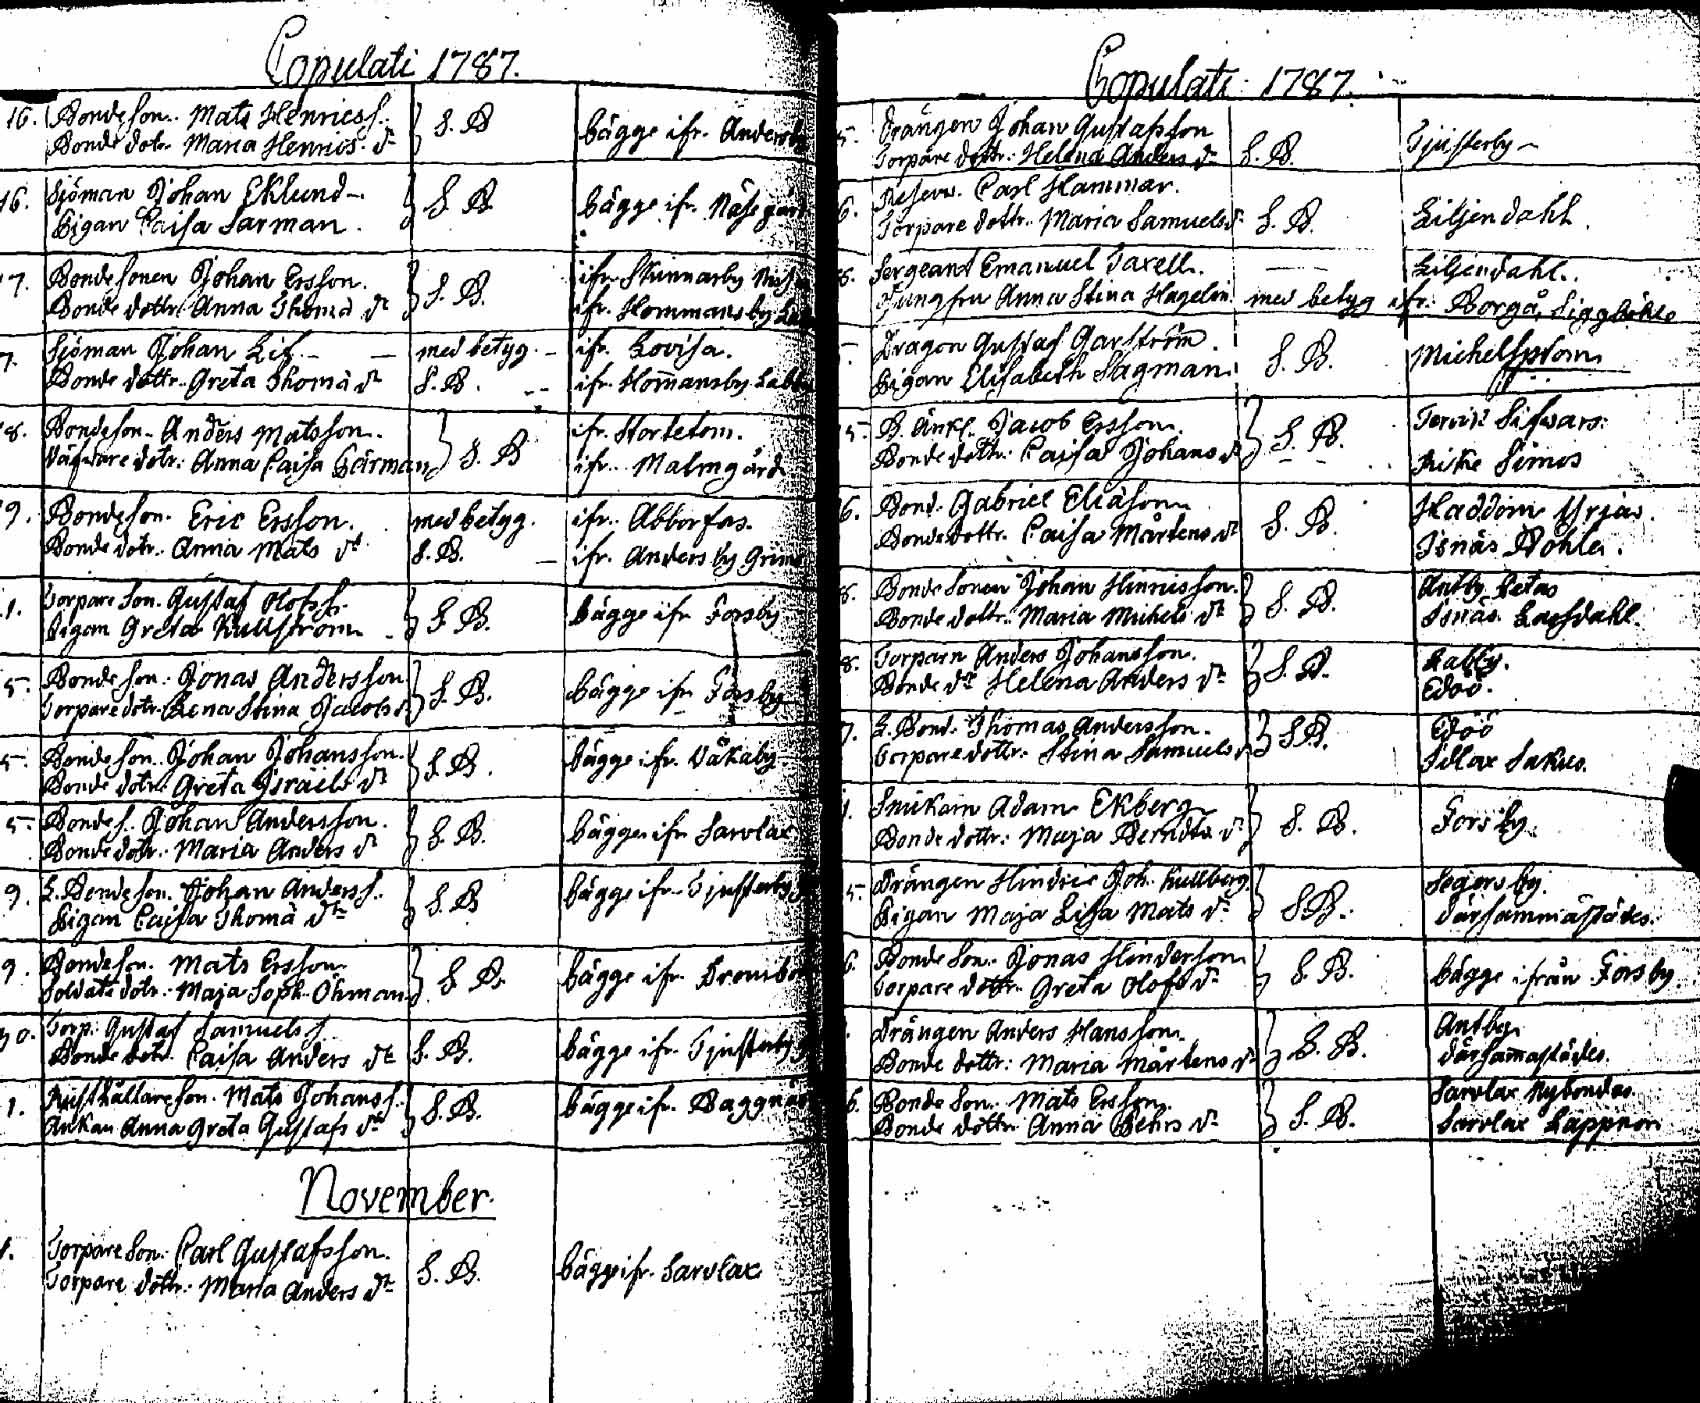 Copulati 1787.
16. Bondeson. Mats Henricss. S. B bägge ifr. Andersby
Bonde dotr. Maria Henrics. dr
16. Sjöman Johan Eklund S. B bägge ifr. Näse gård
Pigan Caisa Sarman.
17. Bondesonen Johan Ersson. S. B. ifr. Skinnarby
Bonde dottr. Anna Thomä dr ifr. Hommansby
7. Sjöman Johan Lif. med betyg. ifr. Lovisa.
Bonde dottr. Greta Thomä dr S. B. ifr. Hommansby Labby
18. Bondeson. Anders Matsson. S. B ifr. Hortetom.
dotr. Anna Caisa ifr. Malmgård
9. Bondeson. Eric Ersson. med betyg. ifr. Abborfos.
Bonde dotr. Anna Mats dr S. B. ifr. Andersby
1. Torpare son. Gustaf Olofss. S. B. bägge ifr Forsby
Pigan Greta Kullström
5. Bonde son. Jonas Andersson S. B. bägge ifr Forsby
Torpare dotr. Lena Stina Jacobs d.
5. Bonde son. Johan Johansson. S. B. bägge ifr. Våkaby
Bonde dotr. Greta Israels dr
5. Bonde s. Johan Andersson. S. B. bägge ifr Sarvlax
Bonde dotr. Maria Anders dr
9. Bondeson. Johan Anderss. S. B bägge ifr. Tjusterby
Pigan Caisa Thomä dr
9. Bondeson. Mats Ersson S. B. bägge ifr.
Soldats dotr. Maja Soph. Öhman
30. Torp. Gustaf Samuelss. S. B. bägge ifr. Tjusterby
Bonde dotr. Caisa Anders dr
1. Rusthållareson. Mats Johanss. S. B. bägge ifr. Baggnäs
Änkan Anna Greta Gustafs dr
November.
Torpare Son. Carl Gustafsson. S. B. bägge ifr. Sarvlax
Torpare dottr. Maria Anders dr
Copulati 1787.
5. Drängen Johan Gustafsson Tjusterby
Torpare dottr. Helena Anders dr S. B.
6. Reserv. Carl Hammar.
Torpare dottr. Maria Samuels dr S. B. Liljendahl.
8. Sergeant Emanuel Taxell. Liljendahl.
Jungfru Anna Stina Hagelin. med betyg ifr. Borgå, Siggböhle
Dragon Gustaf Garström. S. B. Michelspiltom
Pigan Elisabeth Sagman.
15. B. Änkl. Jacob Ersson. S. B. Tervik Sifvars.
Bonde dottr. Caisa Johans dr Rike Simos
6. Bond. Gabriel Eliasson S. B. Haddom Yrjas.
Bonde dottr. Caisa Mårtens dr Isnäs Böhle.
8. Bonde sonen Johan Hinricsson. S. B. Antby Petas
Bonde dottr. Maria Michels dr Isnäs.
8. Torparn Anders Johansson. S. B. Labby.
Bonde dr Helena Anders dr Edöö.
7. Bond. Thomas Andersson. S. B. Edöö
Torpare dottr. Stina Samuels d. Idlax Sakus.
1. Snikarn Adam Ekberg S. B. Forsby.
Bonde dottr. Maja Berndts dr
5. Drängen Hindric Joh. Kullberg S. B. Segersby.
Pigan Maja Lisa Mats dr därsammastädes.
6. Bonde Son. Jonas Hinderson S. B. bägge ifrån Forsby.
Torpare dottr. Greta Olofs dr
Drängen Anders Hansson. S. B. Antby
Bonde dottr. Maria Mårtens dr därsammastädes.
6. Bonde Son. Mats Ersson. S. B. Sarvlax Nybondas
Bonde dottr. Anna Pehrs dr Sarvlax